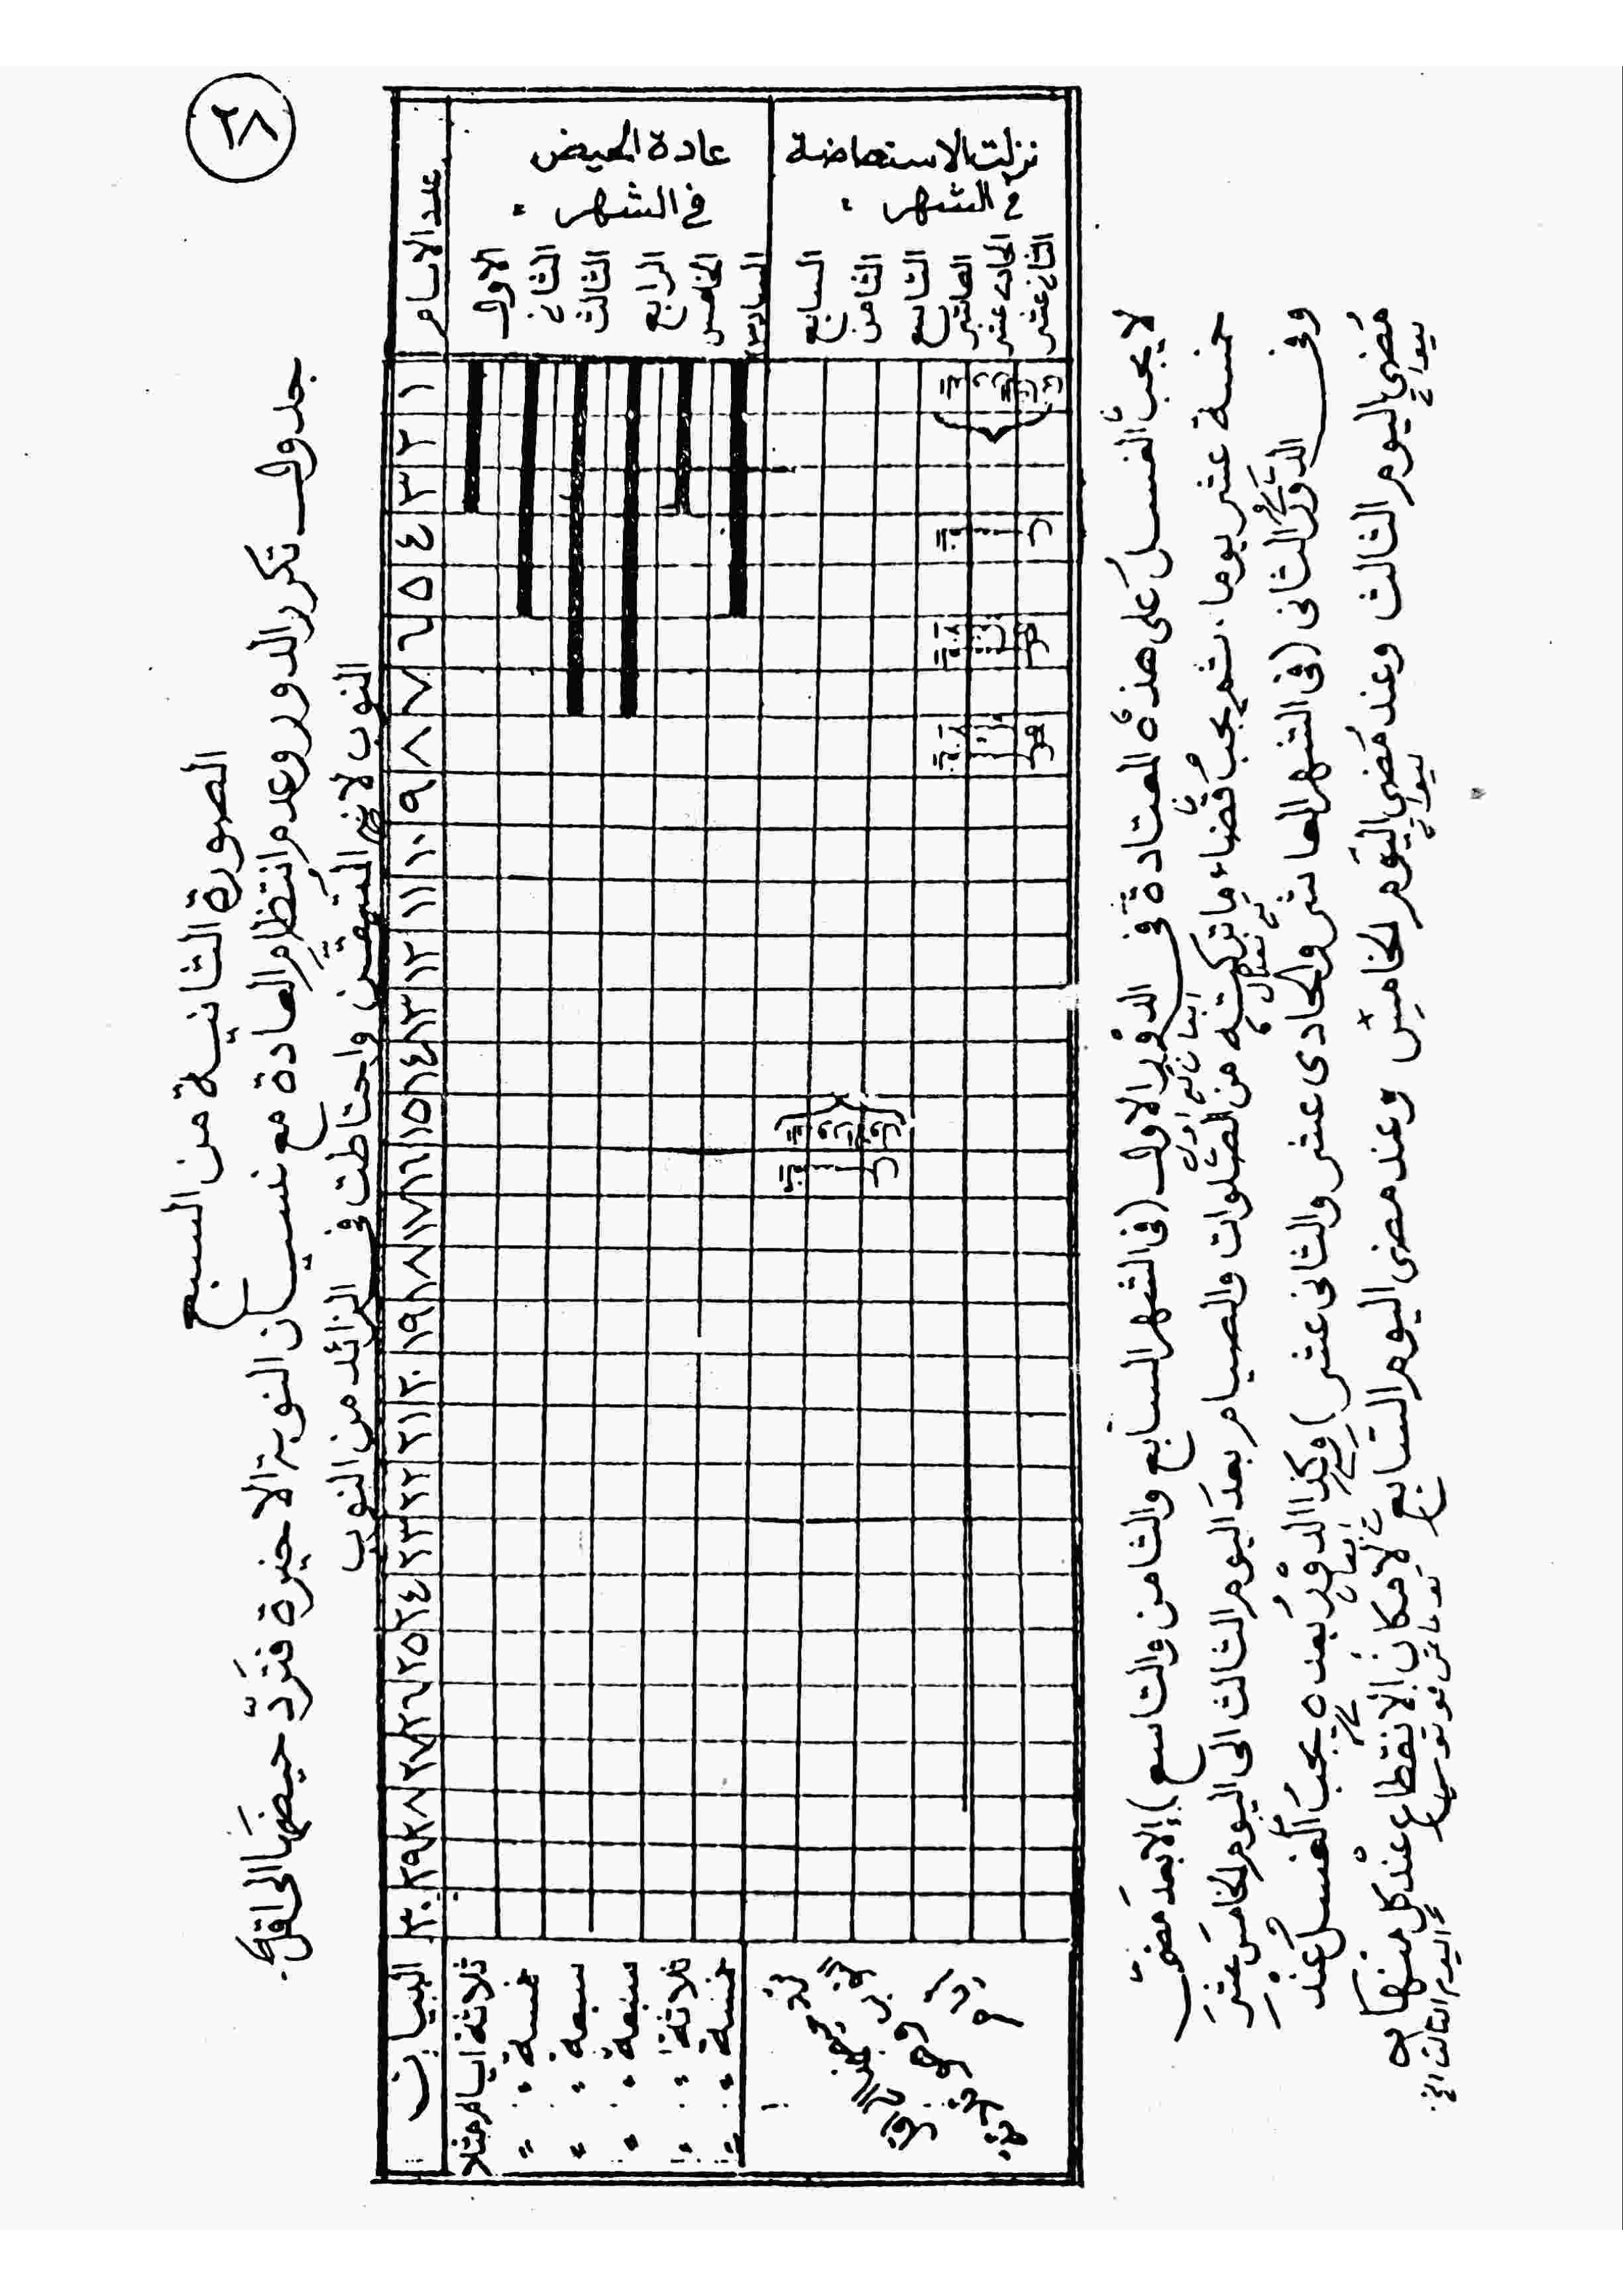 ٢٨
الصورة الثانية من السبع
جدول تكرر الدور وعدم انتظام العادة مع نسيان النوبة الاخيرة فترد حيضها الى اقل
النوب لانه المتيقن واحتاطت فى الزائد من النوب
عدد الايام ١ ٢ ٣ ٤ ٥ ٦ ٧ ٨ ٩ ١٠ ١١ ١٢ ١٣ ١٤ ١٥ ١٦ ١٧ ١٨ ١٩ ٢٠ ٢١ ٢٢ ٢٣ ٢٤ ٢٥ ٢٦ ٢٧ ٢٨ ٢٩ ٣٠ البيان
عادة الحيض
فى الشهر :
الاول ثلاثة ايام مثلا
الثانى خمسة " "
الثالث سبعة " "
الرابع سبعة " "
الخامس ثلاثة " "
السادس خمسة " "
نزلت الاستحاضة
فى الشهر :
السابع
الثامن
التاسع
العاشر
الحادى عشر
الثانى عشر
لا يجب الغسل على هذه المعتادة فى الدور الاول (فى الشهر السابع والثامن والتاسع) إلا بعد مضى
خمسة عشر يوما. ثم يجب قضاء ما تركته من الصلوات والصيام بعد اليوم الثالث الى اليوم الخامس عشر
وفى الدور الثانى (فى الشهر العاشر والحادى عشر والثانى عشر) وكذا الدور بعده يجب الغسل عند
مضى اليوم الثالث وعند مضى اليوم الخامس وعند مضى اليوم السابع لامكان الانقطاع عند كل منها